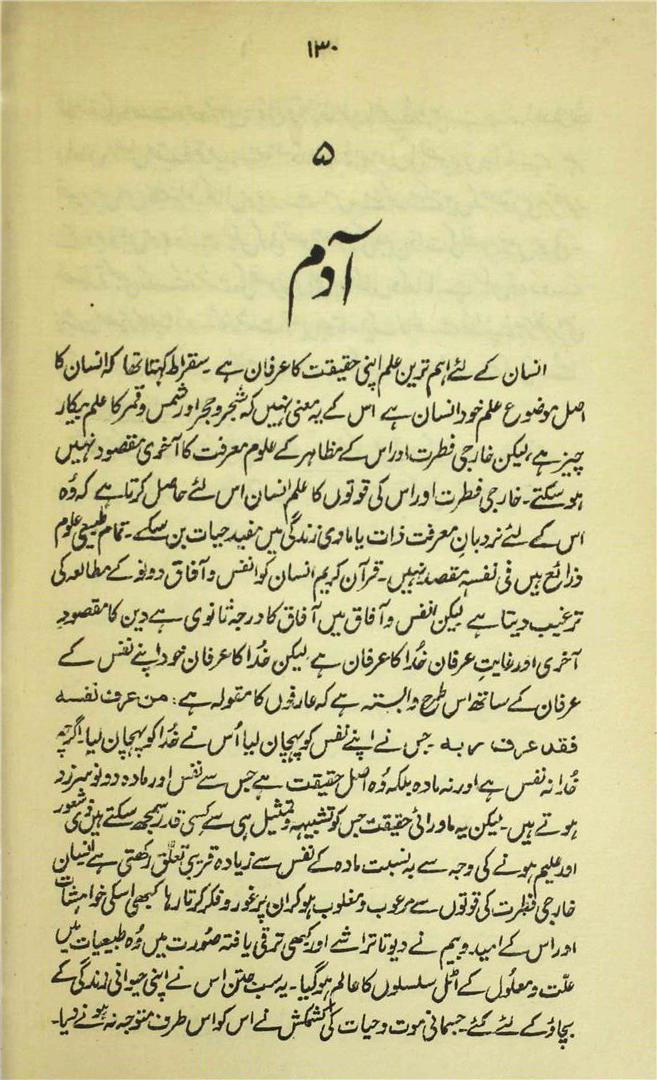 ۱۳۰
۵
آدم
انسان کے لئے اہم ترین علم اپنی حقیقت کا عرفان ہے۔ سقراط کہتا تھا کہ انسان کا
اصل موضوع علم خود انسان ہے اس کے یہ معنی نہیں کہ شجر و حجر اور شمس و قمر کا علم بیکار
چیز ہے، لیکن خارجی فطرت اور اس کے مظاہر کے علوم معرفت کا آخری مقصود نہیں
ہو سکتے۔ خارجی فطرت اور اس کی قوتوں کا علم انسان اس لئے حاصل کرتا ہے کہ وُہ
اس کے لئے نردبانِ معرفت ذات یا مادی زندگی میں مفید حیات بن سکے۔ تمام طبیعی علوم
ذرائع ہیں فی نفسہٖ مقصد نہیں۔ قرآن کریم انسان کو انفس و آفاق دونو کے مطالعہ کی
ترغیب دیتا ہے لیکن انفس و آفاق میں آفاق کا درجہ ثانوی ہے دین کا مقصودِ
آخری اور غایتِ عرفان خُدا کا عرفان ہے لیکن خُدا کا عرفان خود اپنے نفس کے
عرفان کے ساتھ اس طرح وابستہ ہے کہ عارفوں کا مقولہ ہے: من عرف نفسه
فقد عرف ربه۔ جس نے اپنے نفس کو پہچان لیا اُس نے خُدا کو پہچان لیا۔ اگرچہ
خُدا نہ نفس ہے اور نہ مادہ بلکہ وُہ اصل حقیقت ہے جس سے نفس اور مادہ دونو سرزد
ہوتے ہیں۔ لیکن یہ ماورائی حقیقت جس کو تشبیہہ و تمثیل ہی سے کسی قدر سمجھ سکتے ہیں ذی شعور
اور علیم ہونے کی وجہ سے بہ نسبت مادہ کے نفس سے زیادہ قریبی تعلّق رکھتی ہے انسان
خارجی فطرت کی قوتوں سے مرعوب و مغلوب ہو کر ان پر غور و فکر کرتا رہا کبھی اسکی خواہشات
اور اس کے امید و بیم نے دیوتا تراشے اور کبھی ترقی یافتہ صُورت میں وُہ طبیعیات میں
علّت و معلُول کے اٹل سلسلوں کا عالم ہو گیا۔ یہ سب جتن اس نے اپنی حیوانی زندگی کے
بچاؤ کے لئے کئے۔ جسمانی موت و حیات کی کشمکش نے اس کو اس طرف متوجہ نہ ہونے دیا۔